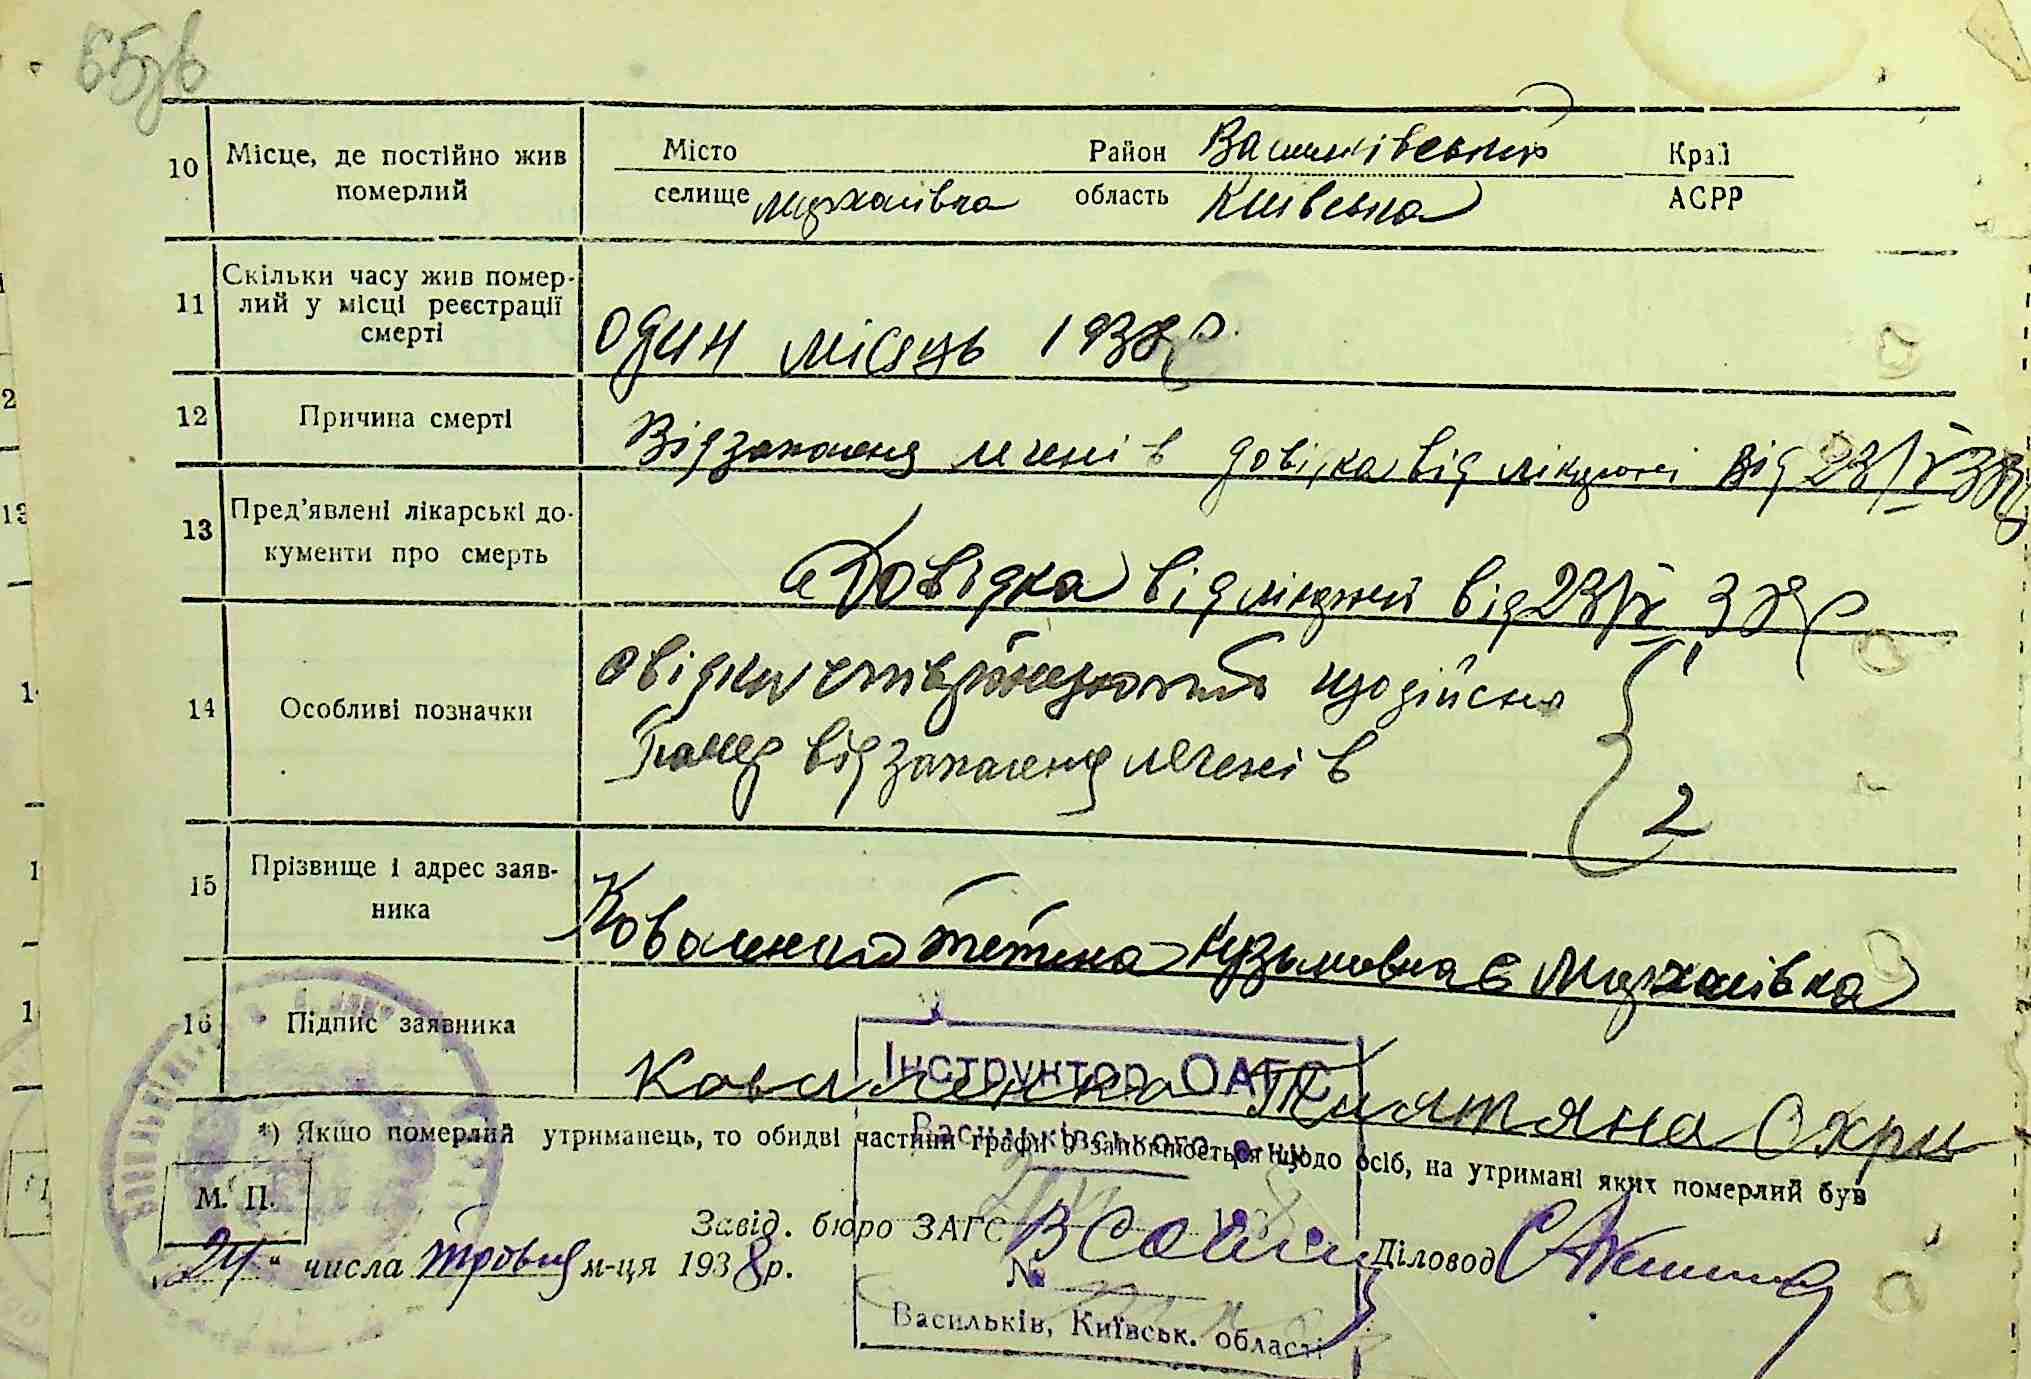 10 Місце, де постійно жив померлий
Місто Район Васильківський Край
селище Михайлівка область Київська АСРР
11 Скільки часу жив помер-
лий у місці реєстрації
смерті
один місяць 1938 р.
12 Причина смерті
Від запаленя легенів довідка від лікарні від 23/V 38
13 Пред'явлені лікарські до-
кументи про смерть
Довідка від лікарні від 23/V 38 р
14 Особливі позначки
свідки що дійсно
помер від запаленя легенів
1
2
15 Прізвище і адрес заяв-
ника
Коваленко Тетяна Кузьмовна с Михайлівка
16 Підпис заявника
Коваленко Татяна
*) Якщо померлий утриманець, то обидві частини графи 9 заповнюється щодо осіб, на утримані яких померлий був
Інструктор ОАГС
Васильківського р-ну
М. П.
Завід. бюро ЗАГС Діловод
„24“ числа травня м-ця 1938 р.
№
Васильків, Київськ. області